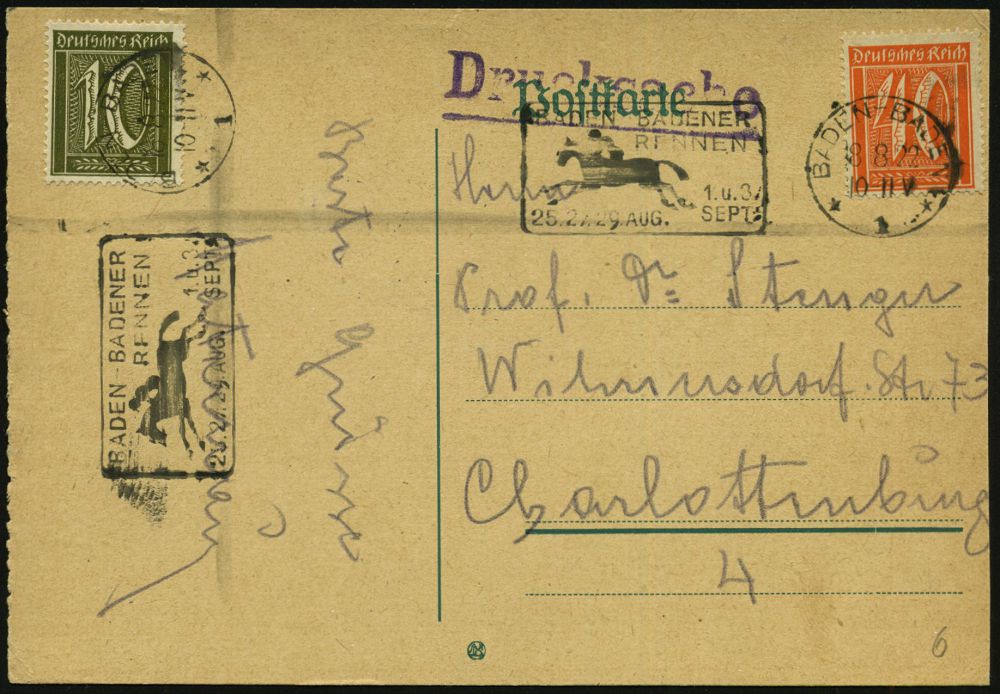 Deutsches Reich
10
10-11 V
*
1
Drucksache
Postkarte
BADEN-BADENER
RENNEN
1. u. 3.
25. 27. 29. AUG. SEPT.
Deutsches Reich
40
BADEN-BADEN
8.8.22
10-11 V
* 1 *
Herrn
Prof. Dr. Stenger
Wilmersdorf. Str 73
Charlottenburg
4
BADEN-BADENER
RENNEN
1. u. 3.
25. 27. 29. AUG. SEPT.
Grüsse
6